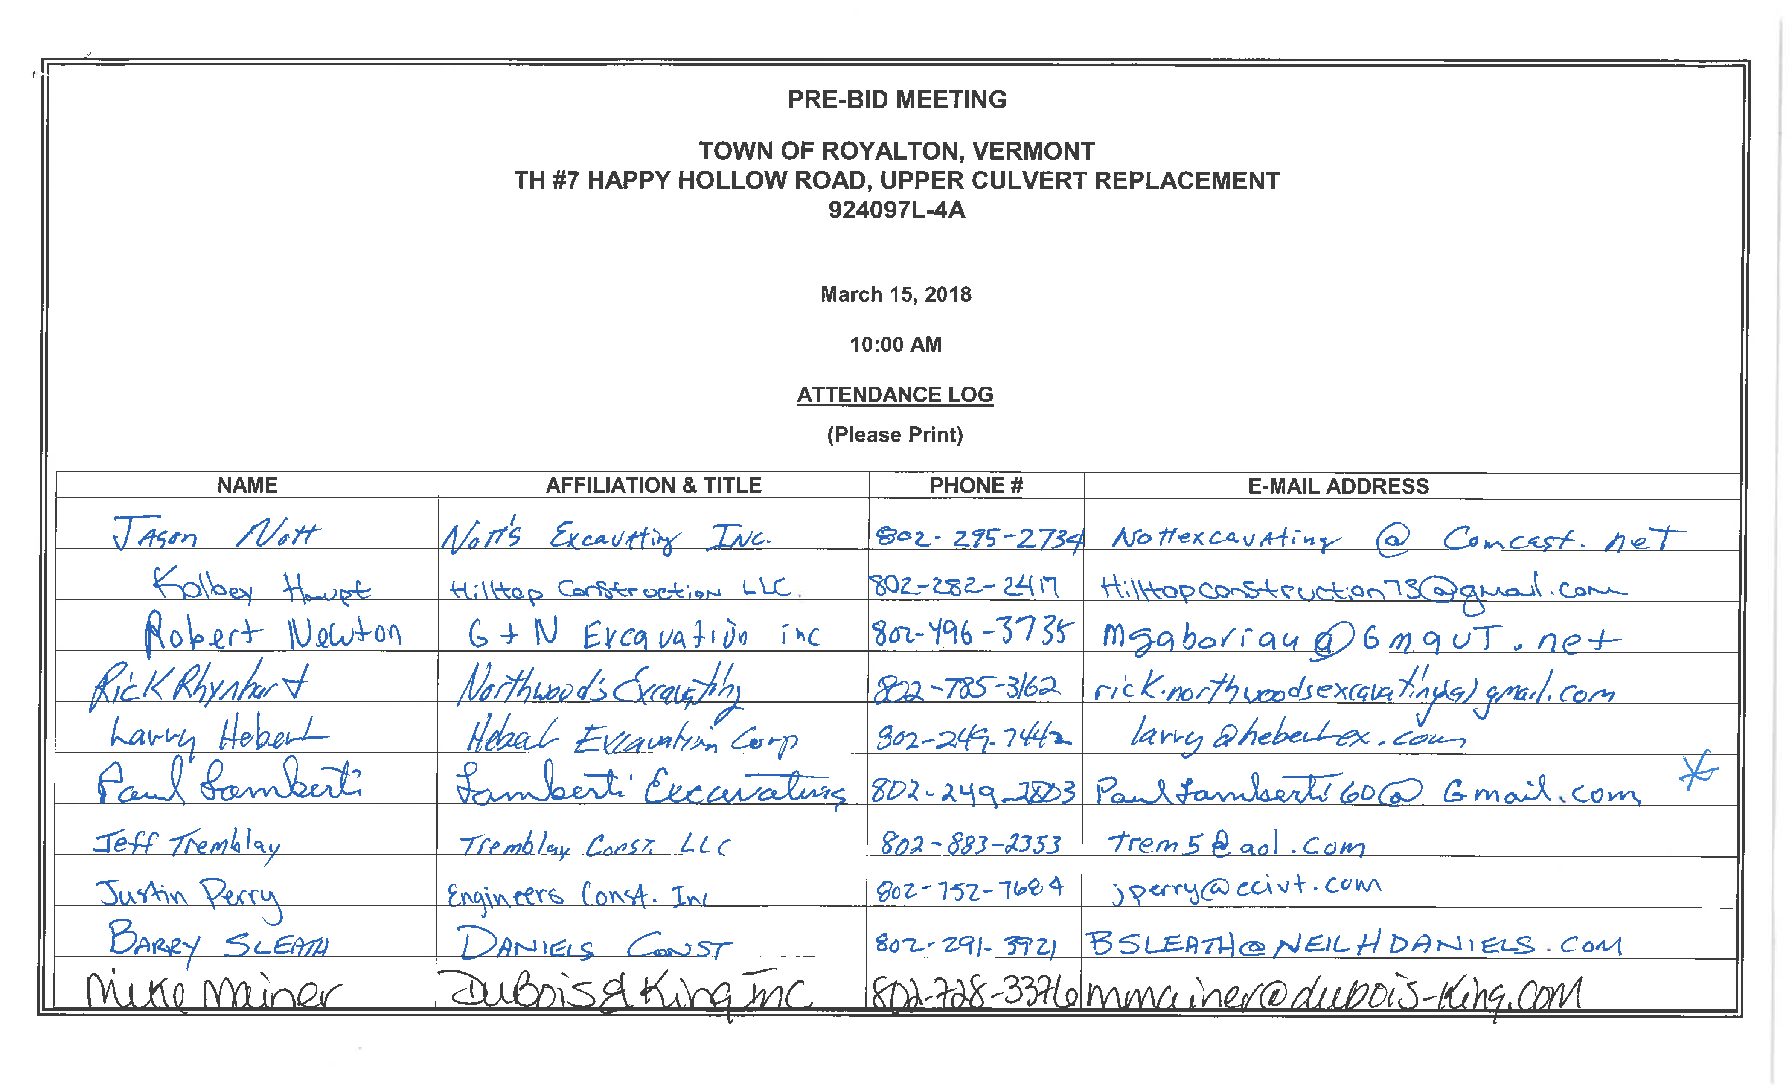 PRE-BID MEETING
TOWN OF ROYALTON, VERMONT
TH #7 HAPPY HOLLOW ROAD, UPPER CULVERT REPLACEMENT
924097L-4A
March 15, 2018
10:00 AM
ATTENDANCE LOG
(Please Print)
NAME AFFILIATION & TITLE PHONE # E-MAIL ADDRESS
Jason Nott Nott's Excavating Inc. 802-295-2734 Nottexcavating @ Comcast.net
Kolbey Haupt Hilltop Construction LLC. 802-282-2417 Hilltopconstruction73@gmail.com
Robert Newton G + N Excavatio inc 802-496-3735 mgaboriau@GmavT.net
Rick Rhynhart Northwood's Excavating 802-785-3162 rick.northwoodsexcavating@gmail.com
Larry Hebert Hebert Excavation Corp 802-249-7442 larry@hebertex.com
Paul Lamberti Lamberti Excavating 802-249-2803 PaulLamberti60@Gmail.com
Jeff Tremblay Tremblay Const. LLC 802-883-2353 Trem5@aol.com
Justin Perry Engineers Const. Inc 802-752-7684 jperry@ecivt.com
BARRY SLEATH DANIELS CONST 802-291-3921 BSLEATH@NEILHDANIELS.COM
Mike Mainer DuBois & King Inc 802-728-3376 mmainer@dubois-king.com